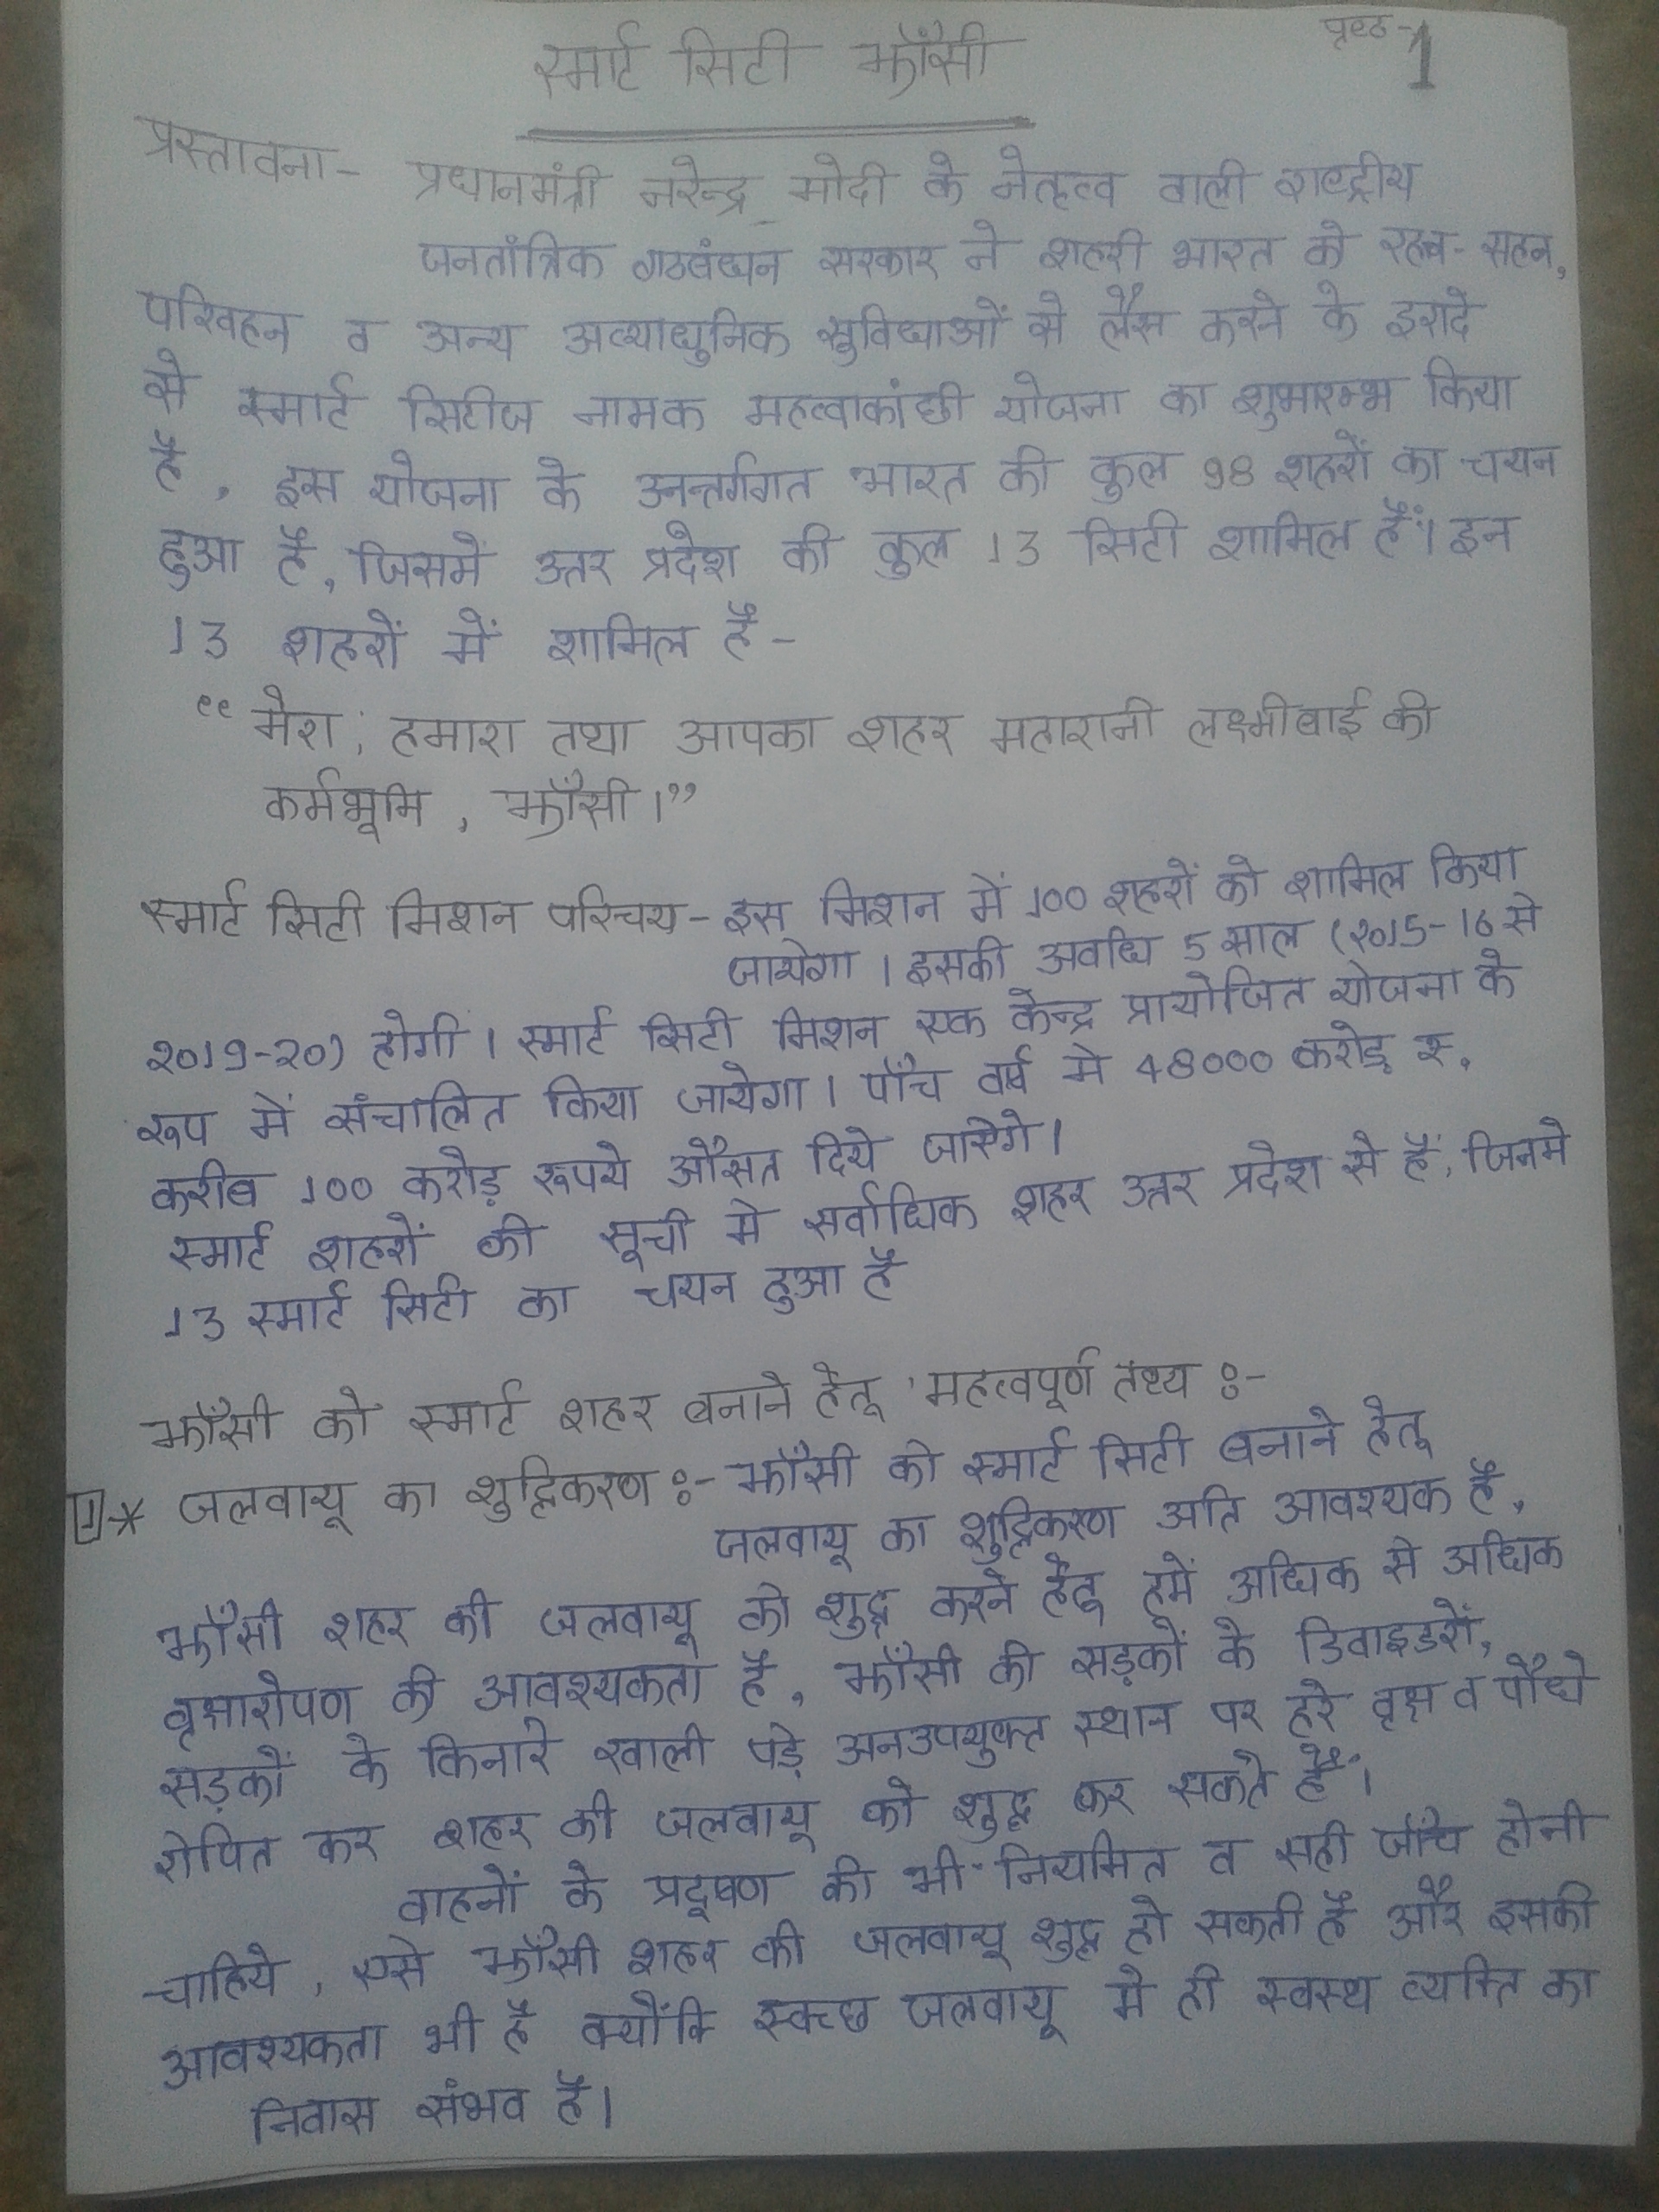 पृष्ठ-1
स्मार्ट सिटी झाँसी
प्रस्तावना- प्रधानमंत्री नरेन्द्र मोदी के नेतृत्व वाली राष्ट्रीय
जनतांत्रिक गठबंधन सरकार ने शहरी भारत को रहन-सहन,
परिवहन व अन्य अत्याधुनिक सुविधाओं से लैस करने के इरादे
से स्मार्ट सिटीज नामक महत्वाकांछी योजना का शुभारम्भ किया
है, इस योजना के अन्तर्गगत भारत की कुल 98 शहरों का चयन
हुआ है, जिसमें उत्तर प्रदेश की कुल 13 सिटी शामिल हैं। इन
13 शहरों में शामिल है-
“मेरा, हमारा तथा आपका शहर महारानी लक्ष्मीबाई की
कर्मभूमि, झाँसी।”
स्मार्ट सिटी मिशन परिचय- इस मिशन में 100 शहरों को शामिल किया
जायेगा। इसकी अवधि 5 साल (2015-16 से
2019-20) होगी। स्मार्ट सिटी मिशन एक केन्द्र प्रायोजित योजना के
रूप में संचालित किया जायेगा। पाँच वर्ष मे 48000 करोड़ रू.
करीब 100 करोड़ रूपये औसत दिये जाएंगे।
स्मार्ट शहरों की सूची मे सर्वाधिक शहर उत्तर प्रदेश से हैं, जिनमे
13 स्मार्ट सिटी का चयन हुआ है
झाँसी को स्मार्ट शहर बनाने हेतू महत्वपूर्ण तथ्य :-
1* जलवायू का शुद्धिकरण :- झाँसी को स्मार्ट सिटी बनाने हेतू
जलवायू का शुद्धिकरण अति आवश्यक है,
झाँसी शहर की जलवायू को शुद्ध करने हेतू हमें अधिक से अधिक
वृक्षारोपण की आवश्यकता है, झाँसी की सड़कों के डिवाइडरों,
सड़कों के किनारे खाली पड़े अनउपयुक्त स्थान पर हरे वृक्ष व पौधे
रोपित कर शहर की जलवायू को शुद्ध कर सकते हैं।
वाहनों के प्रदूषण की भी नियमित व सही जाँच होनी
चाहिये, एसे झाँसी शहर की जलवायू शुद्ध हो सकती है और इसकी
आवश्यकता भी है क्योंकि स्वच्छ जलवायू मे ही स्वस्थ व्यक्ति का
निवास संभव है।